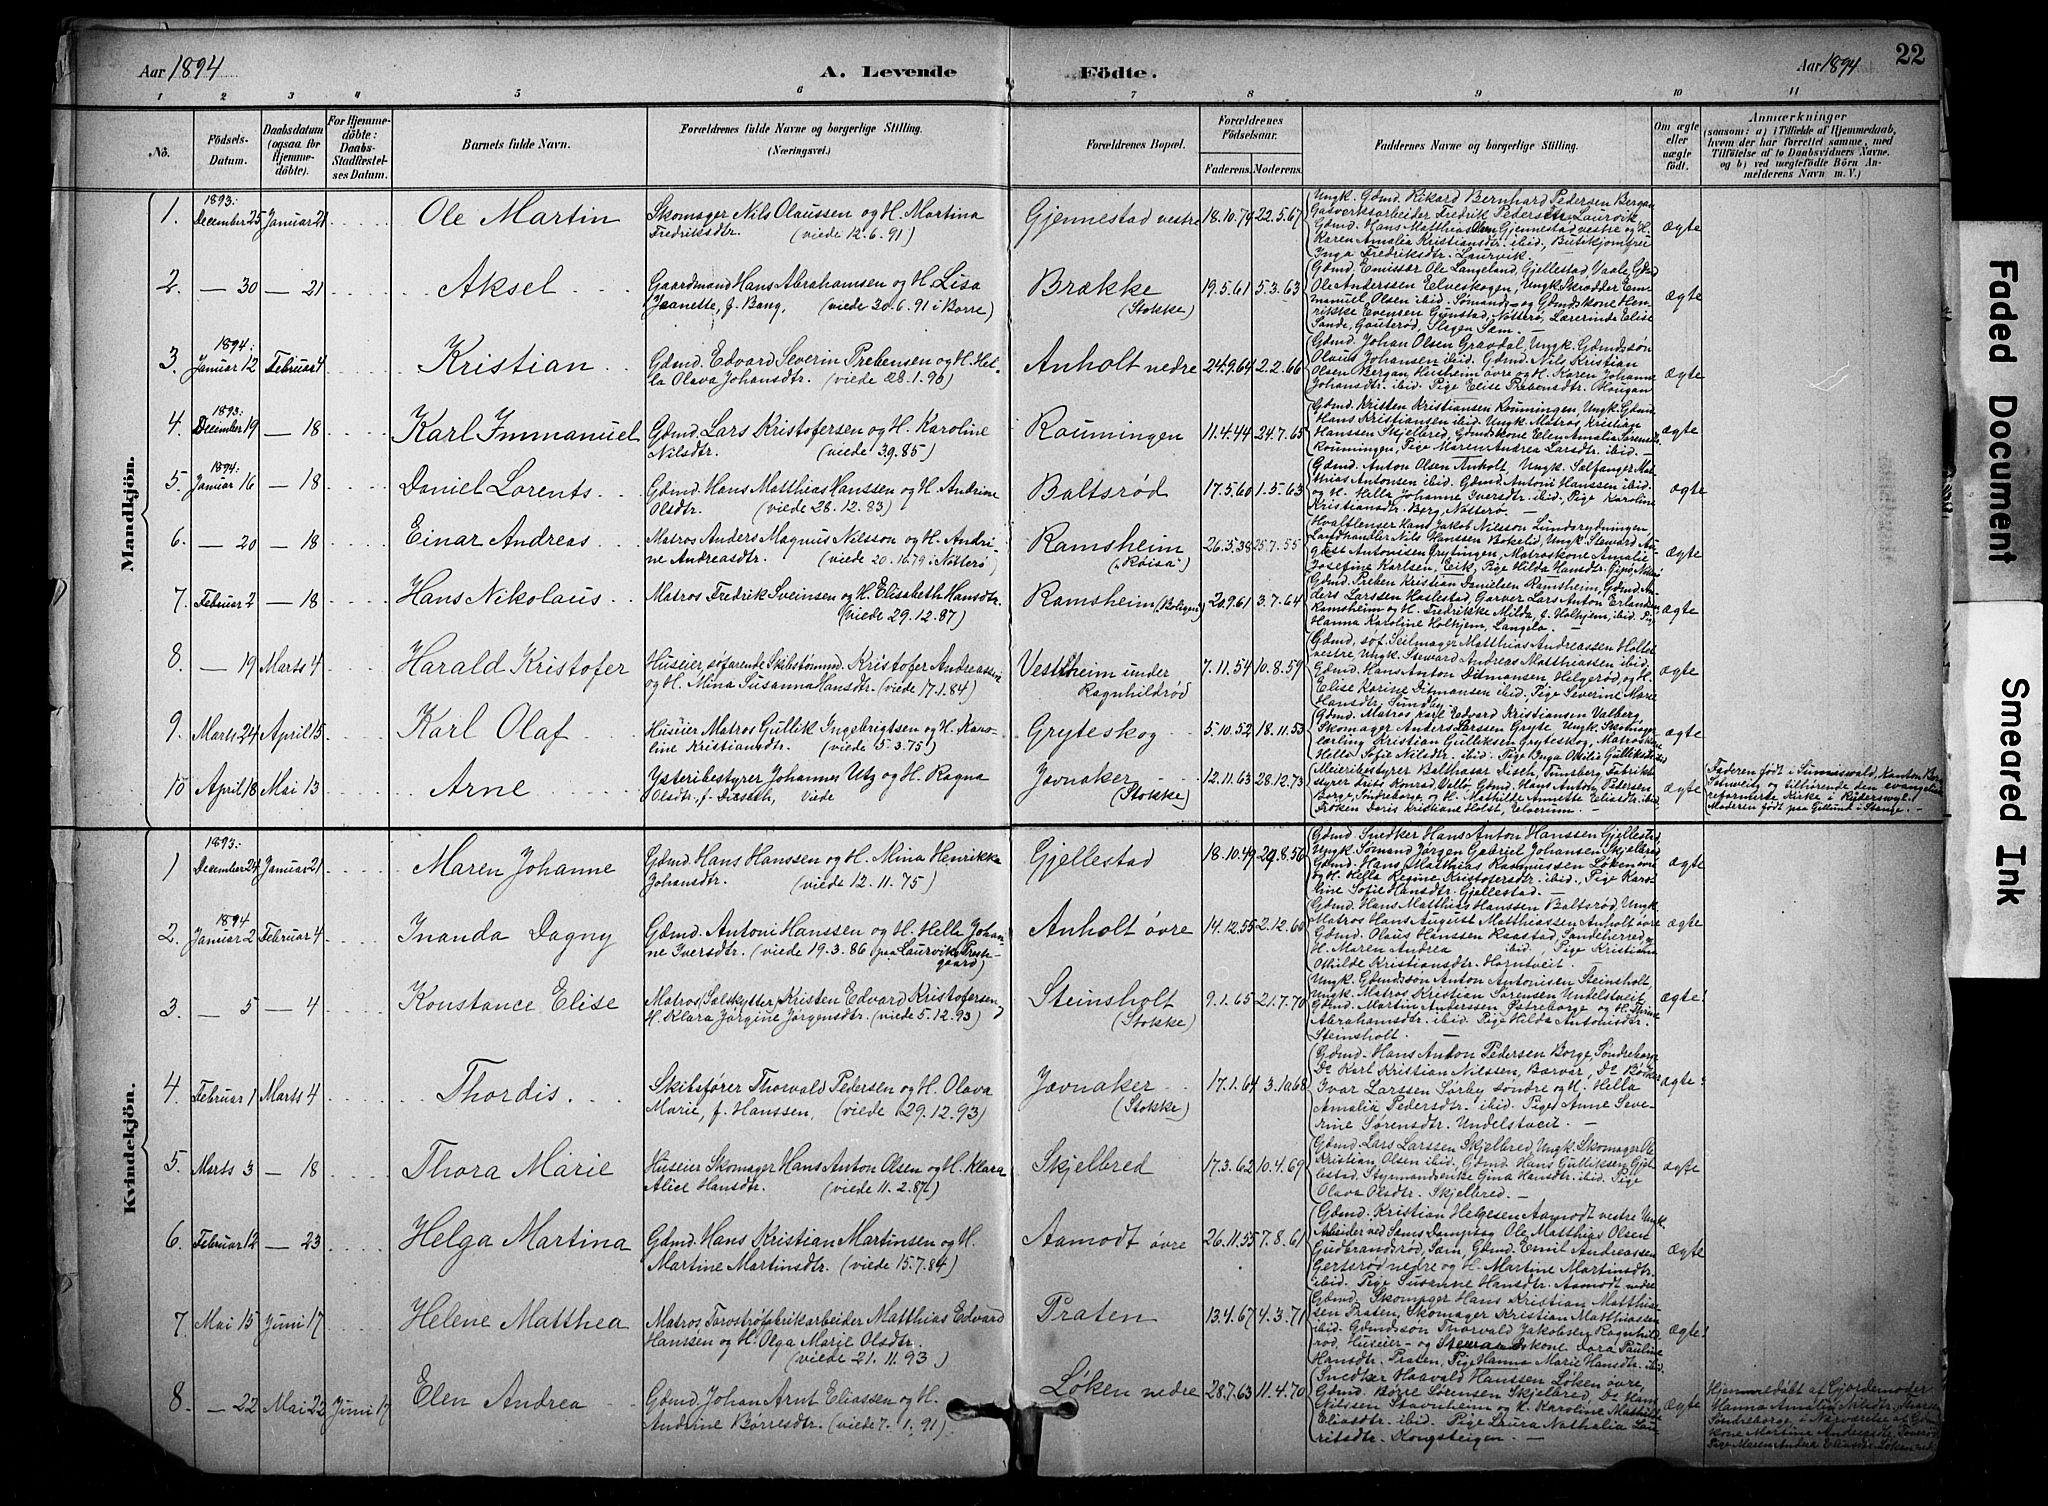 Aar 1894
A. Levende
Födte.
Aar 1894
22
1 2 3 4 5 6 7 8 9 10 11
Nô.
Födsels-
Datum.
Daabsdatum
(ogsaa for
Hjemme-
döbte).
For Hjemme-
döbte:
Daabs-
Stadfæstel-
ses Datum.
Barnets fulde Navn.
Forældrenes fulde Navne og borgerlige Stilling.
(Næringsvei.)
Forældrenes Bopæl.
Forældrenes
Födselsaar.
Faderens. Moderens.
Faddernes Navne og borgerlige Stilling.
Om ægte
eller
uægte
födt.
Anmærkninger
(saasom: a) i Tilfælde af Hjemmedaab,
hvem der har forrettet samme, med
Tilföielse af to Daabsvidners Navne.
og b) ved uægtefödte Börn An-
melderens Navn m. V.)
Mandkjön.
1893:
1. December 25 Januar 21 Ole Martin
Skomager Nils Olaussen og H. Martina
Fredriksdtr. (viede 12.6.91)
Gjennestad vestre 22.5.67
Ungk. Gdmd. Rikard Bernhard Pedersen Bergan
Gasverksarbeider Fredrik Pedersen Laurvik
Gdmd. Hans Matthias Olsen Gjennestad vestre og H.
Karen Amalia Kristiansdtr. ibid,
Inga Fredriksdtr. Laurvik.
ægte
2. — 30 — 21 Aksel
Gaardmand Hans Abrahamsen og H. Lisa
Jeanette, f. Bang, (viede 20.6.91 i Borre)
Brække
(Stokke)
19.5.61 5.3.63
Gdmd. Emissær Ole Langeland, Gjellestad, Vaale, Gdmd
Ole Anderssen Ungk. Skrædder Em-
manuel Olsen ibid.
Lærerinde Elise
Sande,
ægte
1894:
3. Januar 12 Februar 4 Kristian
Gdmd. Edvard Severin Prebensen og H. Hel-
la Olava Johansdtr. (viede 28.1.90)
Anholt nedre 24.9.64 2.2.66
Gdmd. Johan Olsen Gravdal, Ungk. Gdmdssön
Olaus Johansen ibid. Gdmd. Nils Kristian
Olsen Bergan Husheim övre og H. Karen Johanne
Johansdtr. ibid. Pige Elise Prebensdtr.
ægte
1893:
4. December 19 — 18 Karl Immanuel
Gdmd. Lars Kristofersen og H. Karoline
Nilsdtr. (viede 3.9.85)
Roumingen 11.4.44 24.7.65
Gdmd. Kristen Kristiansen Roumingen, Ungk. Gdmd.
Hans Kristiansen ibid. Ungk. Matros Kristian
Hanssen Skjelbred, Gdmdskone Elen Amalia
Roumingen, Pige Maren Andrea Larsdtr. ibid. —
ægte
1894:
5. Januar 16 — 18 Daniel Lorents
Gdmd. Hans Matthias Hanssen og H. Andrine
Olsdtr. (viede 28.12.83)
Boltsrød 17.5.60 1.5.63
Gdmd. Anton Olsen Anholt, Ungk. Sælfanger Mat-
thias Antonsen ibid. Gdmd. Antoni Hanssen ibid.
og H. Hella Johanne Iversdtr. ibid. Pige Karoline
Kristiansdtr. Berg, Nötterö. —
ægte
6. — 20 — 18 Einar Andreas
Matros Anders Magnus Nilsson og H. Andri-
ne Andreasdtr. (viede i Nötterö)
Ramsheim
(„Røisa“)
26.3.38 25.7.55
Hvalflenser Karl Jakob Nilsson Lundsrydningen,
Landhandler Nils Hanssen Bokelid, Ungk. Steward Au-
gust Antonisen Grytingen, Matroskone Amalie
Josefine Karlsen, Eik, Pige Hilda Hansdtr.
ægte
7. Februar 2 — 18 Hans Nikolaus
Matros Fredrik Sveinsen og H. Elisabeth Hansdtr.
(viede 29.12.87)
Ramsheim 3.7.64
Gdmd. Preben Kristian Danielsen Ramsheim, Gdmd. An-
ders Larssen Haslestad, Garver Lars Anton Erlandsen,
Ramsheim og H. Fredrikke Milda, f. Holtjem, ibid. Pige
Hanna Karoline Holtjem, Langelo. —
ægte
8. — 19 Marts 4 Harald Kristofer
Huseier, söfarende Skibstömmd. Kristofer Andreassen
og H. Mina Susanna Hansdtr. (viede 17.1.84)
Vestheim under
Ragnhildröd
7.11.54 10.8.59
Gdmd. söf. Seilmager Matthias Andreassen Holtet
vestre, Ungk. Steward Andreas Matthiassen ibid.
Gdmd. Hans Anton Ditmansen, Helgerød, og H.
Elise Karine Ditmansen ibid. Pige Severine Marie
Hansdtr. Sundby.
ægte
9. Marts 24 April 15 Karl Olaf
Huseier Matros Gullik Ingebrigtsen og H. Karo-
line Kristiansdtr. (viede 5.3.75)
Gryteskog 5.10.52 18.11.53
Gdmd. Matros Karl Edvard Kristiansen Valberg,
Skomager Anders Larssen Gryte, Ungk. Skomager-
lærling Kristian Gulliksen Gryteskog, Matroskone
Hella Sofie Nilsdtr. ibid. Pige Inga Otilia Gulliksdtr.
ægte
10 April 18 Mai 13 Arne
Ysteribestyrer Johannes Utz og H. Ragna
Olsdtr. f. Viede
Jovnaker
(Stokke)
12.11.63 28.12.73
Meieribestyrer Balthasar Disch, Tunsberg, Fabrik-
styrer Frits Konrad Gdmd. Hans Anton Pedersen
Borge, Söndreborge, og H. Mathilde Annette Eliasdtr. ibid.
Fröken Doris Kristiane Holst, Elverum.
ægte
Faderen födt i Kanton Bern
Schweitz og tilhörende den evangelisk
reformerte Kirke i
Moderen födt paa i Stange. —
Kvindekjön.
1893:
1 December 24 Januar 21 Maren Johanne
Gdmd. Hans Hanssen og H. Mina Henrikke
Johansdtr. (viede 12.11.75)
Gjellestad 18.10.49 29.8.56
Gdmd. Snedker Hans Anton Hanssen Gjellestad
Ungk. Sömand Jörgen Gabriel Johansen Skjelbred
Gdmd. Hans Matthias Rasmussen Løken övre
og H. Hella Regine Kristofersdtr. ibid., Pige Karo-
line Sofie Hansdtr. Gjellestad. —
ægte
1894
2. Januar 2 Februar 4 Inanda Dagny
Gdmd. Antoni Hanssen og H. Helle Johan-
ne Iversdtr. (viede 19.3.86 paa Laurviks Preste-
gaard)
Anholt övre 14.12.55 2.12.60
Gdmd. Hans Matthias Hanssen Boltsrød, Ungk.
Matros Hans August Matthiassen Anholt övre
Gdmd. Olaus Hanssen Ranstad, Sandeherred, og
H. Maren Andrea ibid. Pige Kristiana
Othilde Kristiansdtr. Horntveit. —
ægte
3. — 5 — 4 Konstance Elise
Matros, Sælskytter, Kristen Edvard Kristofersen
H. Klara Jörgine Jörgensdtr. (viede 5.12.93)
Steinsholt
(Stokke)
9.1.65 21.7.70
Ungk. Gdmdssön Anton Antonisen Steinsholt,
Ungk. Matros Kristian Sørensen Undelstveit
Gdmd. Martin Anderssen Pedreborge og H. Trine
Abrahamsdtr. ibid. Pige Hilda Antonisdtr.
Steinsholt. —
ægte!
4. Februar 1 Marts 4 Thordis
Skibsförer Thorvald Pedersen og H. Olava
Marie, f. Hanssen, (viede 29.12.93)
Jovnaker
(Stokke)
17.1.64 3.10.68
Gdmd. Hans Anton Pedersen Borge, Söndreborge
Do Karl Kristian Nilssen, Bærvar, Do
Ivar Larssen Sørby søndre og H. Hella
Amalia Pedersdtr. ibid. Pige Anne Seve-
rine Sørensdtr. Undelstveit. —
ægte!
5. Marts 3 — 18 Thora Marie
Huseier Skomager Hans Anton Olsen og H. Klara
Alice Hansdtr. (viede 11.2.87)
Skjelbred 17.3.62 10.4.69
Gdmd. Lars Larssen Skjelbred, Ungk. Skomager Ole
Kristian Olsen ibid. Gdmd. Hans Gulliksen Gjel-
lestad, Styrmandsenke Gina Hansdtr. ibid. Pige
Olava Olsdtr. Skjelbred. —
ægte
6. Februar 12 — 23 Helga Martina
Gdmd. Hans Kristian Martinsen og H.
Martine Martinsdtr. (viede 15.7.84)
Aamodt övre 26.11.55 7.8.61
Gdmd. Kristian Helgesen Aamodt vestre Ungk.
Arbeider ved Sems Dampsag Ole Matthias Olsen
Gudbrandsrød, Sæm, Gdmd. Emil Andreassen
Gertsrød nedre og H. Martine Martinsdtr.
ibid. Pige Susanne Hansdtr. Aamodt nedre
ægte
7. Mai 15 Juni 17 Helene Matthea
Matros Matthias Edvard
Hanssen og H. Olga Marie Olsdtr.
(viede 21.11.93)
Praten 13.4.67 4.3.71
Gdmd. Skomager Hans Kristian Matthis-
sen Praten, Skomager Kristian Matthiassen
ibid. Gdmdssön Thorvald Jakobsen Ragnhil-
rød, Huseier- og Dora Pauline
Hansdtr. Praten, Pige Hanna Marie Hansdtr. ibid.
ægte!
8. — 22 Mai 22 Juni 17 Elen Andrea
Gdmd. Johan Arnt Eliassen og H.
Andrine Børresdtr. (viede 7.1.91)
Løken nedre 28.7.63 11.4.70
Snedker Haavald Hanssen Løken övre,
Gdmd. Børre Sørensen Skjelbred, Do Hans
Nilssen Stavnheim og H. Karoline Mathilde
Eliasdtr. ibid. Pige Laura Nathalia Lau-
ritsdtr. Kongsteigen. —
ægte
Hjemmedøbt af Gjordemoder
Hanna Amalia Nilsdtr.
Söndreborge, i Nærværelse af Gdmd-
kone Martine Andreasdtr.
Pige Maren Andrea Eliasdtr. Løken nedre
Faded Document
Smeared Ink